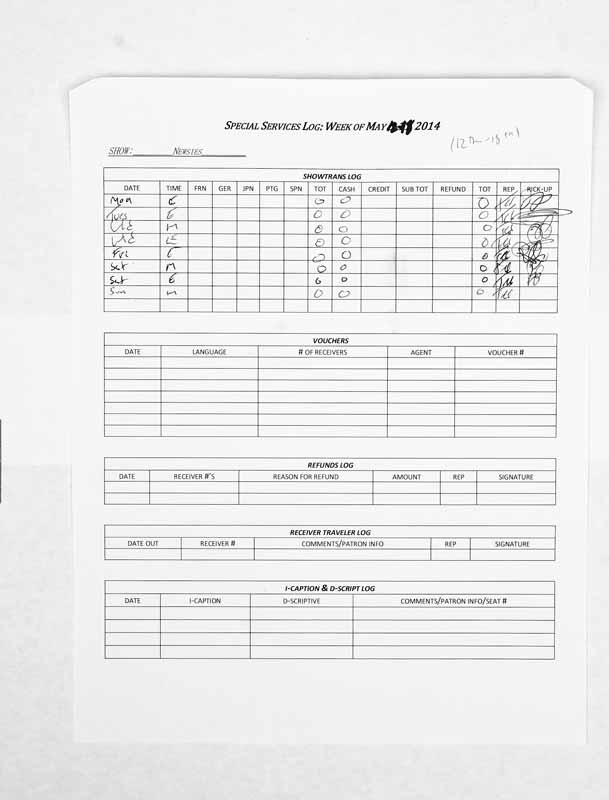 SPECIAL SERVICES LOG: WEEK OF MAY 2014
SHOW: NEWSIES
SHOWTRANS LOG
DATE TIME FRN GER JPN PTG SPN TOT CASH CREDIT SUB TOT REFUND TOT REP PICK-UP
Mon E 0 0 0
Tues E 0 0 0
Wed M 0 0 0
Wed E 0 0 0
Fri E 0 0 0
Sat M 0 0 0
Sat E 0 0 0
Sun M 0 0 0
VOUCHERS
DATE LANGUAGE # OF RECEIVERS AGENT VOUCHER #
REFUNDS LOG
DATE RECEIVER #'S REASON FOR REFUND AMOUNT REP SIGNATURE
RECEIVER TRAVELER LOG
DATE OUT RECEIVER # COMMENTS/PATRON INFO REP SIGNATURE
I-CAPTION & D-SCRIPT LOG
DATE I-CAPTION D-SCRIPTIVE COMMENTS/PATRON INFO/SEAT #